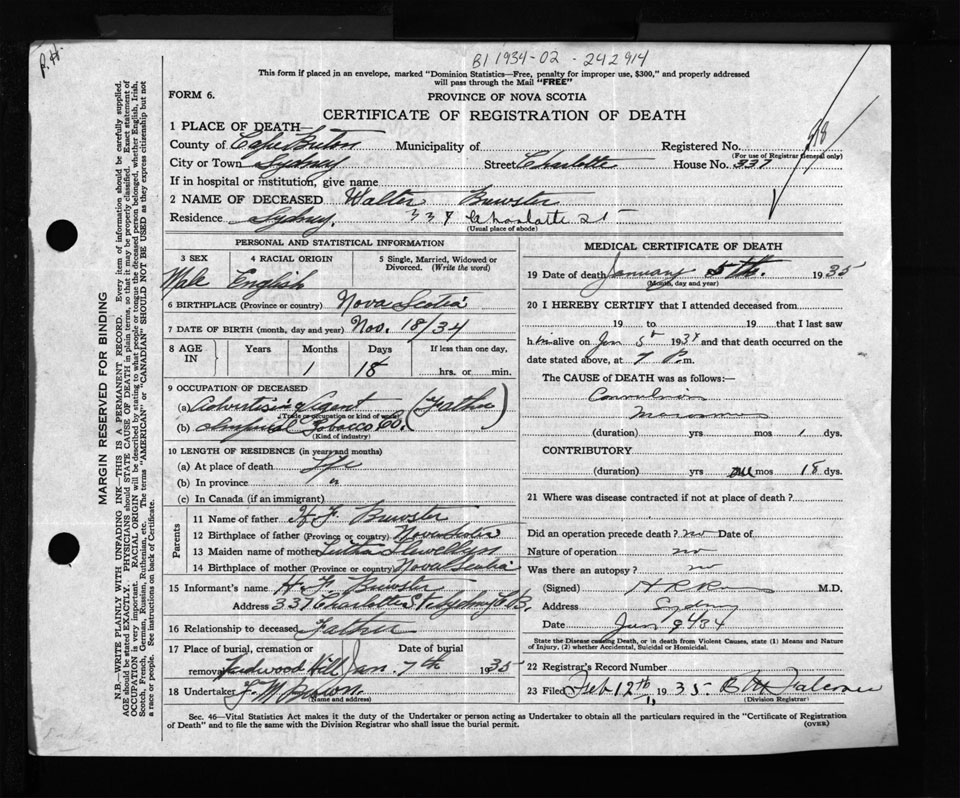 P.H.
B1 1934-02-242914
This form if placed in an envelope, marked "Dominion Statistics—Free, penalty for improper use, $300," and properly addressed
will pass through the Mail "FREE"
FORM 6.
PROVINCE OF NOVA SCOTIA
CERTIFICATE OF REGISTRATION OF DEATH
1 PLACE OF DEATH—
County of Cape Breton Municipality of Registered No.
(For use of Registrar General only)
City or Town Sydney Street Charlotte House No. 337
If in hospital or institution, give name
2 NAME OF DECEASED Walter Brewster
Residence Sydney. 337 Charlotte St
(Usual place of abode)
PERSONAL AND STATISTICAL INFORMATION
3 SEX 4 RACIAL ORIGIN 5 Single, Married, Widowed or Divorced. (Write the word)
Male English
6 BIRTHPLACE (Province or country) Nova Scotia
7 DATE OF BIRTH (month, day and year) Nov. 18/34
8 AGE IN Years Months Days If less than one day,
1 18 hrs. or min.
9 OCCUPATION OF DECEASED
(a) Advertising Agent (Father)
(Trade occupation or kind of work)
(b) Imperial Tobacco Co.
(Kind of industry)
10 LENGTH OF RESIDENCE (in years and months)
(a) At place of death Life
(b) In province "
(c) In Canada (if an immigrant)
Parents
11 Name of father H. F. Brewster
12 Birthplace of father (Province or country) Nova Scotia
13 Maiden name of mother Llewellyn
14 Birthplace of mother (Province or country) Nova Scotia
15 Informant's name H. F. Brewster
Address 337 Charlotte St Sydney C.B.
16 Relationship to deceased Father
17 Place of burial, cremation or Date of burial
removal Hardwood Hill Jan. 7th 1935
18 Undertaker F. W. Brown.
(Name and address)
MEDICAL CERTIFICATE OF DEATH
19 Date of death January 5th. 1935
(Month, day and year)
20 I HEREBY CERTIFY that I attended deceased from
19 to 19 that I last saw
him alive on Jan 5th 1934 and that death occurred on the
date stated above, at 7 P.m.
The CAUSE of DEATH was as follows:—
Convulsions
Marasmus
(duration) yrs mos 1 dys.
CONTRIBUTORY
(duration) yrs one mos 18 dys.
21 Where was disease contracted if not at place of death?
Did an operation precede death? no Date of
Nature of operation no
Was there an autopsy? no
(Signed) M.D.
Address Sydney
Date Jan 9th 34
State the Disease causing Death, or in death from Violent Causes, state (1) Means and Nature
of Injury, (2) whether Accidental, Suicidal or Homicidal.
22 Registrar's Record Number
23 Filed Feb 12th, 1935. Falconer
(Division Registrar)
Sec. 46—Vital Statistics Act makes it the duty of the Undertaker or person acting as Undertaker to obtain all the particulars required in the "Certificate of Registration
of Death" and to file the same with the Division Registrar who shall issue the burial permit.
(OVER)
MARGIN RESERVED FOR BINDING
N.B.—WRITE PLAINLY WITH UNFADING INK—THIS IS A PERMANENT RECORD. Every item of information should be carefully supplied.
AGE should be stated EXACTLY. PHYSICIANS should STATE CAUSE OF DEATH in plain terms, so that it may be properly classified. Exact statement of
OCCUPATION is very important. RACIAL ORIGIN will be described by stating to what people or tongue the deceased person belonged, whether English, Irish,
Scotch, French, German, Russian, Ruthenian, etc. The terms "AMERICAN" or "CANADIAN" SHOULD NOT BE USED as they express citizenship but not
a race or people. See instructions on back of Certificate.